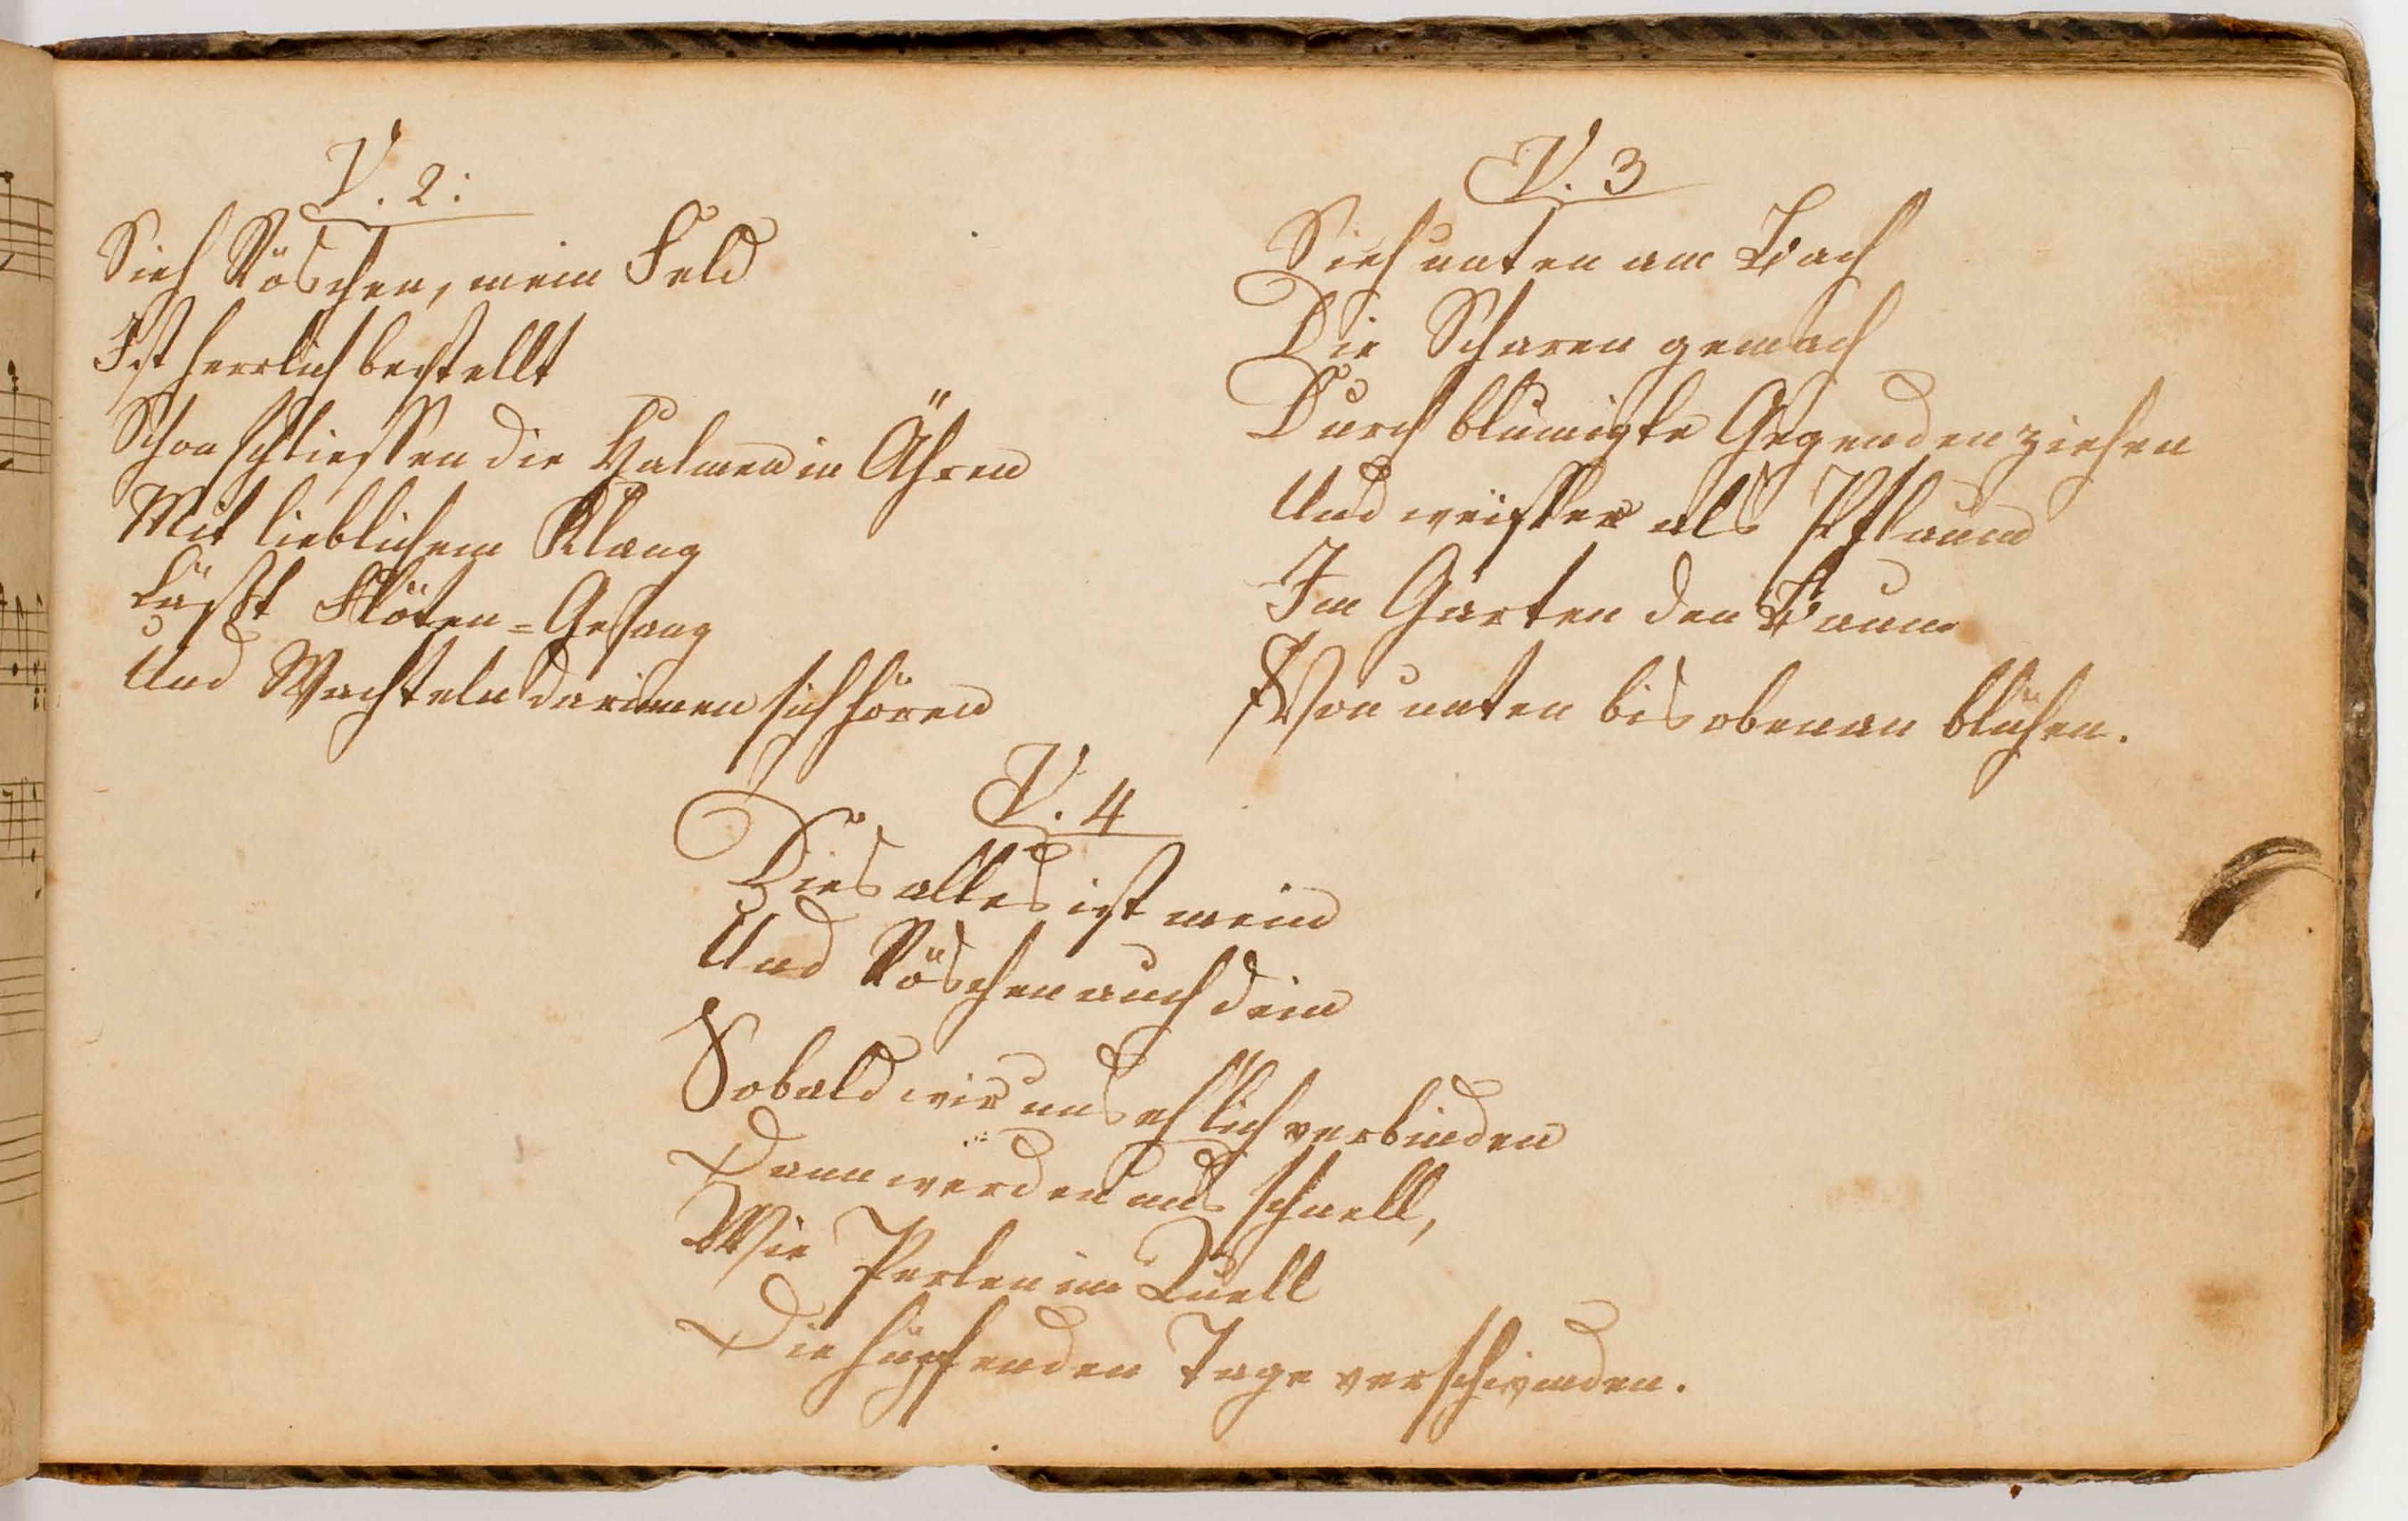 V. 2:
Sieh Röschen, mein Feld
Ist herrlich bestellt
Schon schliessen die Halmen in Ähren
Mit lieblichem Klang
Lässt Flöten=Gesang
Und Wachteln darinnen sich hören
V. 3
Sieh unten am Bach
Die Scharen gemach
Durch blumigte Gegenden ziehen
Und weisser als Pflaum
Im Garten den Baum
Von unten bis obenan blühen.
V. 4
Dies alles ist mein
Und Röschen auch dein
Sobald wir uns ehlich verbinden
Dann werden uns schnell,
Wie Perlen im Quell
Die hüpfenden Tage verschwinden.